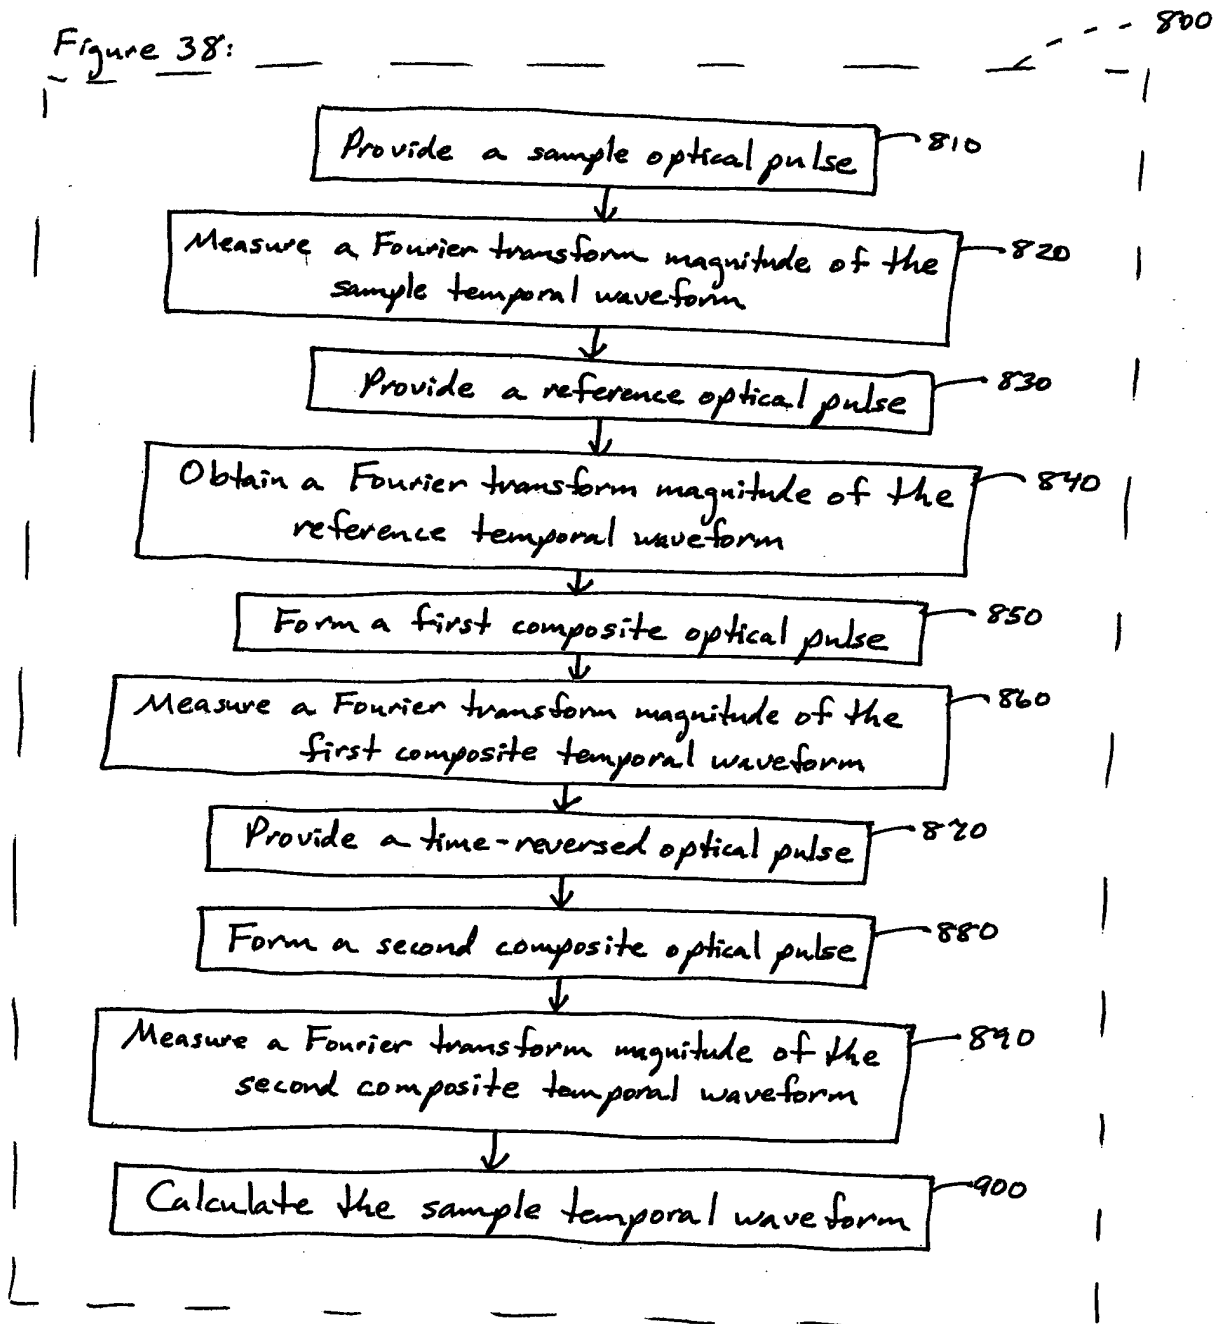 800
Figure 38:
Provide a sample optical pulse
810
Measure a Fourier transform magnitude of the
sample temporal waveform
820
Provide a reference optical pulse
830
Obtain a Fourier transform magnitude of the
reference temporal waveform
840
Form a first composite optical pulse
850
Measure a Fourier transform magnitude of the
first composite temporal waveform
860
Provide a time-reversed optical pulse
870
Form a second composite optical pulse
880
Measure a Fourier transform magnitude of the
second composite temporal waveform
890
Calculate the sample temporal waveform
900